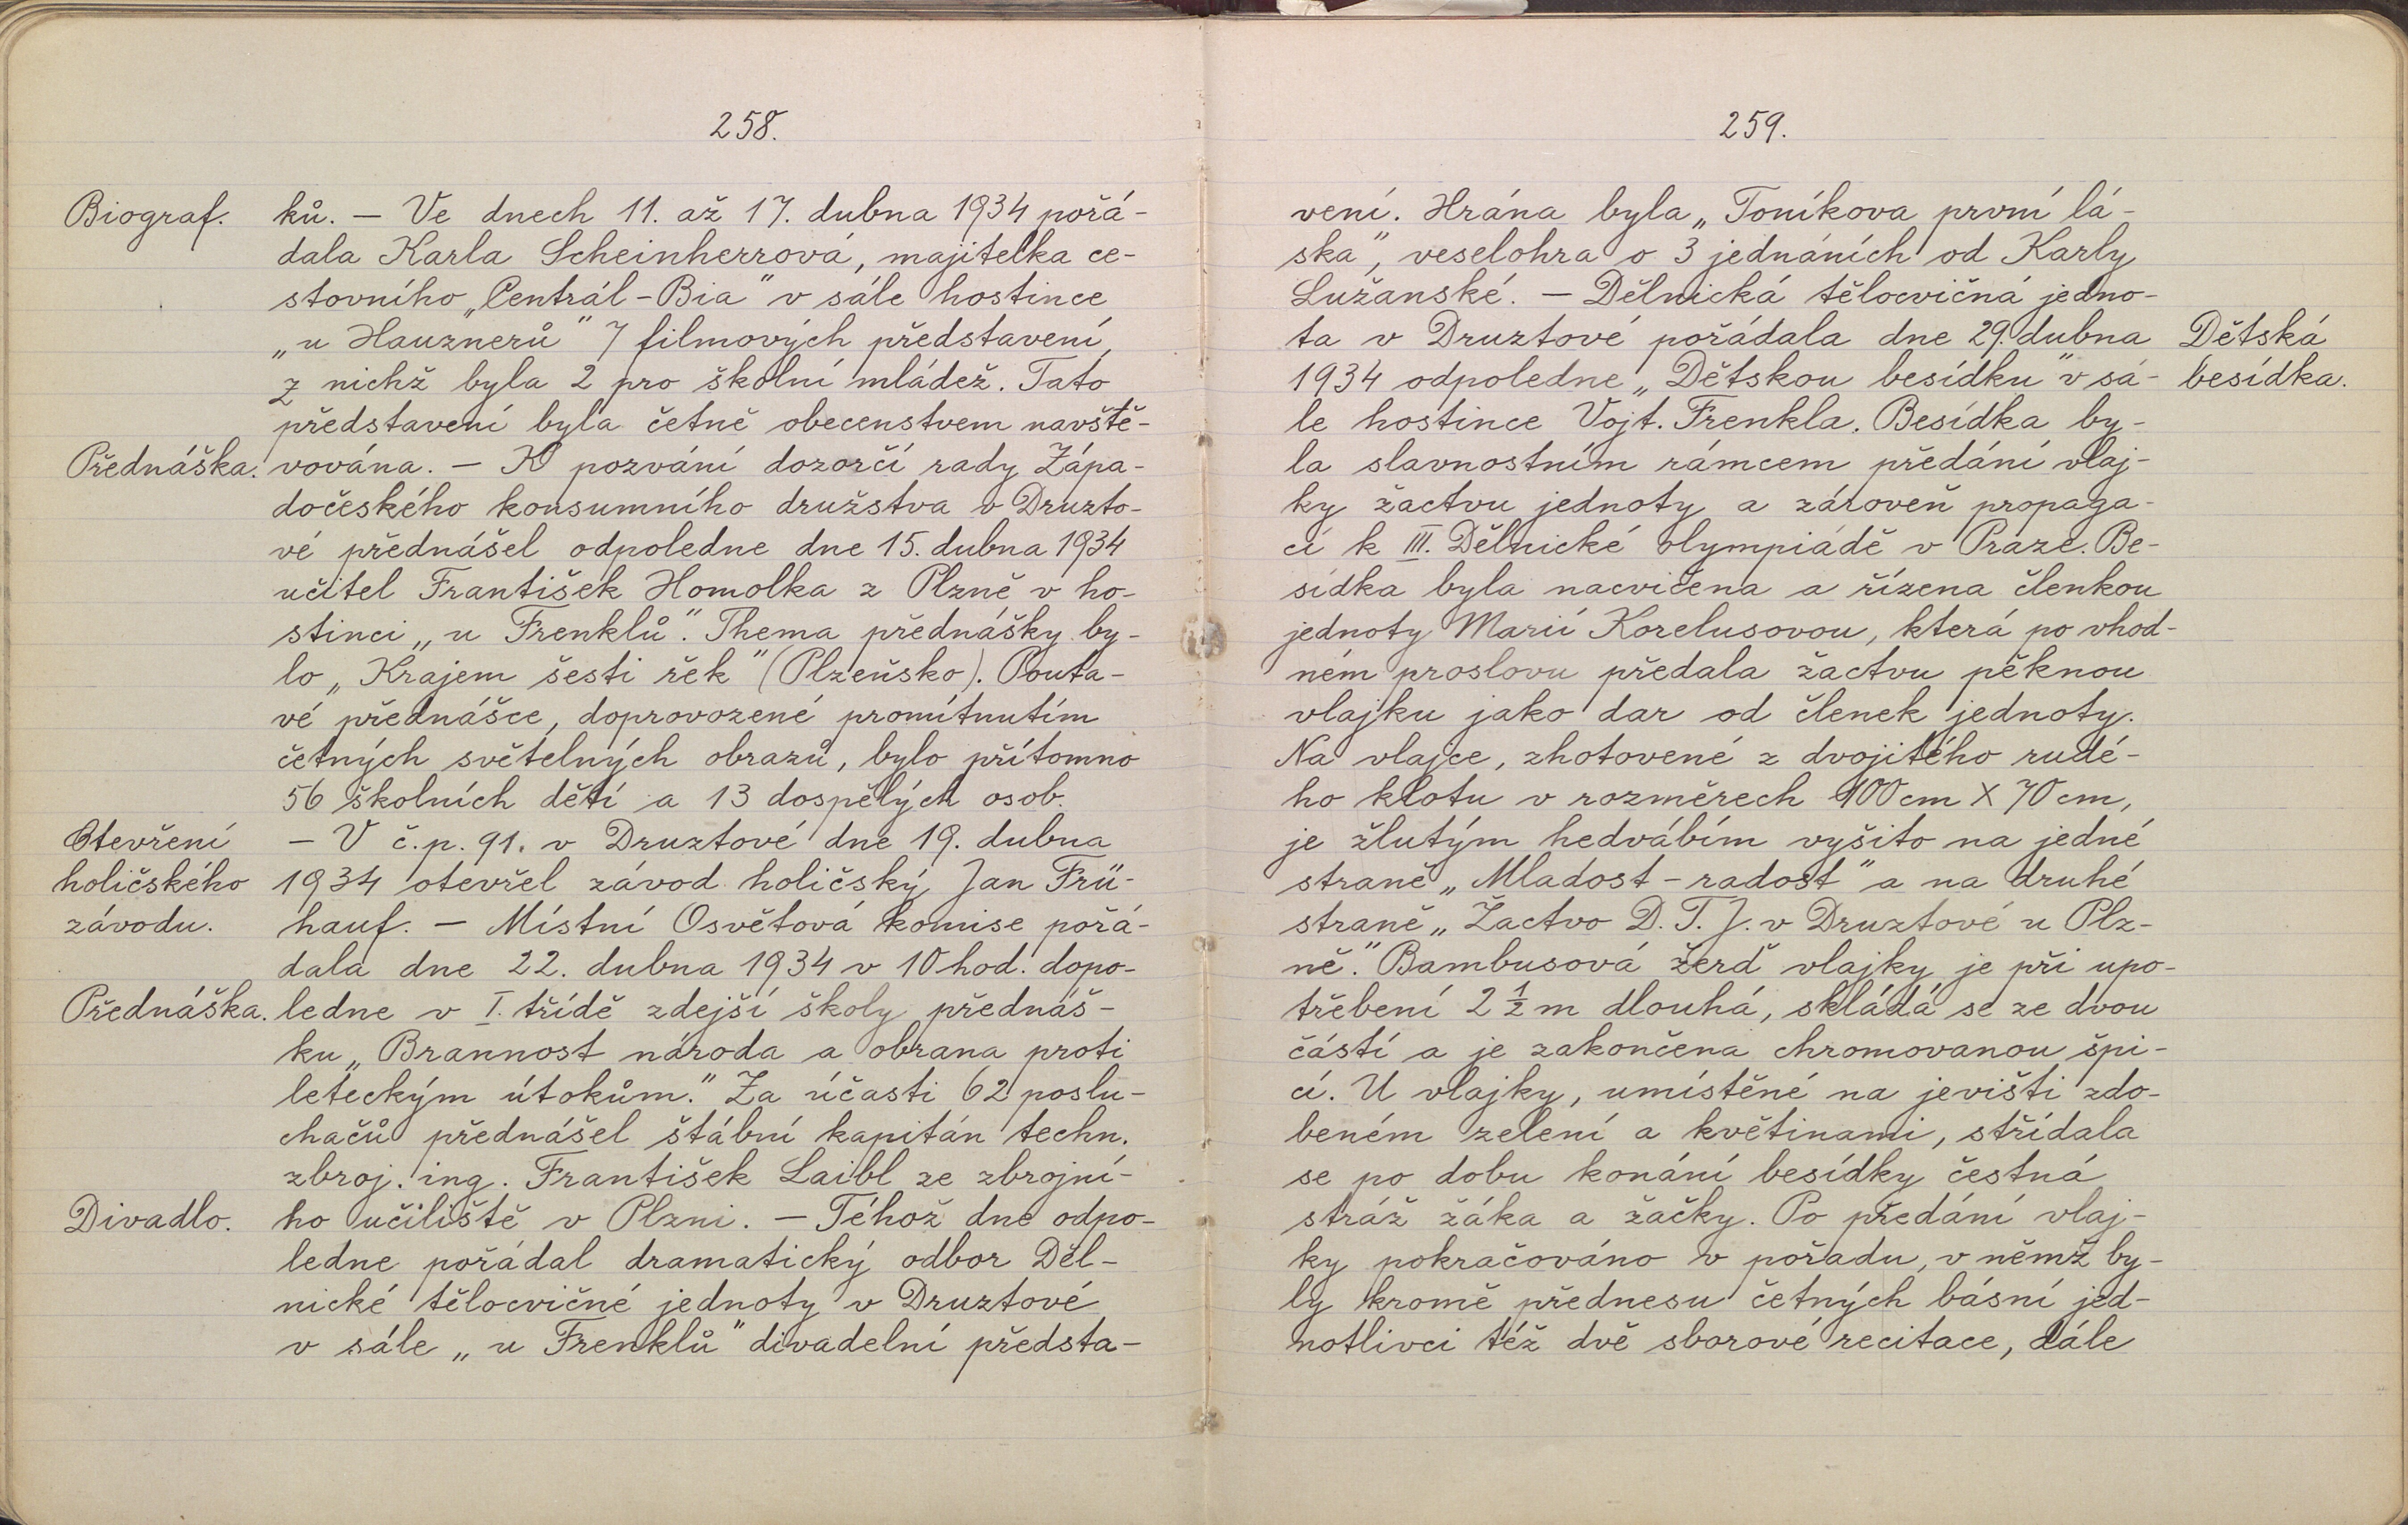 258.
Biograf. ků. – Ve dnech 11. až 17. dubna 1934 pořá-
dala Karla Scheinherrová, majitelka ce-
stovního „Centrál-Bia" v sále hostince
„u Hauznerů" 7 filmových představení,
z nichž byla 2 pro školní mládež. Tato
představení byla četně obecenstvem navště-
Přednáška. vována. – K pozvání dozorčí rady Zápa-
dočeského konsumního družstva v Druzto-
vé přednášel odpoledne dne 15. dubna 1934
učitel František Homolka z Plzně v ho-
stinci „u Frenklů". Thema přednášky by-
lo „Krajem šesti řek" (Plzeňsko). Pouta-
vé přednášce, doprovozené promítnutím
četných světelných obrazů, bylo přítomno
56 školních dětí a 13 dospělých osob.
Otevření – V č.p. 91. v Druztové dne 19. dubna
holičského 1934 otevřel závod holičský Jan Frü-
závodu. hauf. – Místní Osvětová komise pořá-
dala dne 22. dubna 1934 v 10 hod. dopo-
Přednáška. ledne v I. třídě zdejší školy přednáš-
ku „Brannost národa a obrana proti
leteckým útokům." Za účasti 62 poslu-
chačů přednášel štábní kapitán techn.
zbroj. ing. František Laibl ze zbrojní-
Divadlo. ho učiliště v Plzni. – Téhož dne odpo-
ledne pořádal dramatický odbor Děl-
nické tělocvičné jednoty v Druztové
v sále „u Frenklů" divadelní předsta-
259.
vení. Hrána byla „Toníkova první lá-
ska", veselohra o 3 jednáních od Karly
Lužanské. – Dělnická tělocvičná jedno-
ta v Druztové pořádala dne 29. dubna Dětská
1934 odpoledne „Dětskou besídku" v sá- besídka.
le hostince Vojt. Frenkla. Besídka by-
la slavnostním rámcem předání vlaj-
ky žactvu jednoty a zároveň propaga-
cí k III. Dělnické olympiádě v Praze. Be-
sídka byla nacvičena a řízena členkou
jednoty Marií Korelusovou, která po vhod-
ném proslovu předala žactvu pěknou
vlajku jako dar od členek jednoty.
Na vlajce, zhotovené z dvojitého rudé-
ho klotu v rozměrech 100 cm X 70 cm,
je žlutým hedvábím vyšito na jedné
straně „Mladost-radost" a na druhé
straně „Žactvo D. T. J. v Druztové u Plz-
ně." Bambusová žerď vlajky je při upo-
třebení 2 ½ m dlouhá, skládá se ze dvou
částí a je zakončena chromovanou špi-
cí. U vlajky, umístěné na jevišti zdo-
beném zelení a květinami, střídala
se po dobu konání besídky čestná
stráž žáka a žačky. Po předání vlaj-
ky pokračováno v pořadu, v němž by-
ly kromě přednesu četných básní jed-
notlivci též dvě sborové recitace, dále